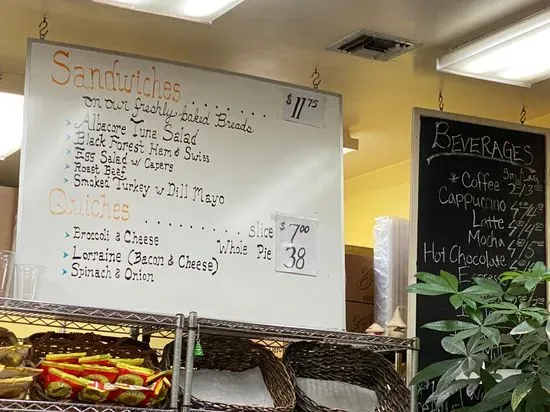 Sandwiches . . . . . . . . $11.75
on our freshly baked Breads
> Albacore Tuna Salad
> Black Forest Ham & Swiss
> Egg Salad w/ Capers
> Roast Beef
> Smoked Turkey w Dill Mayo
Quiches . . . . . . . . . . slice $7.00
Whole Pie 38
> Broccoli & Cheese
> Lorraine (Bacon & Cheese)
> Spinach & Onion
BEVERAGES
* Coffee
Cappuccino
Latte
Mocha
Hot Chocolate